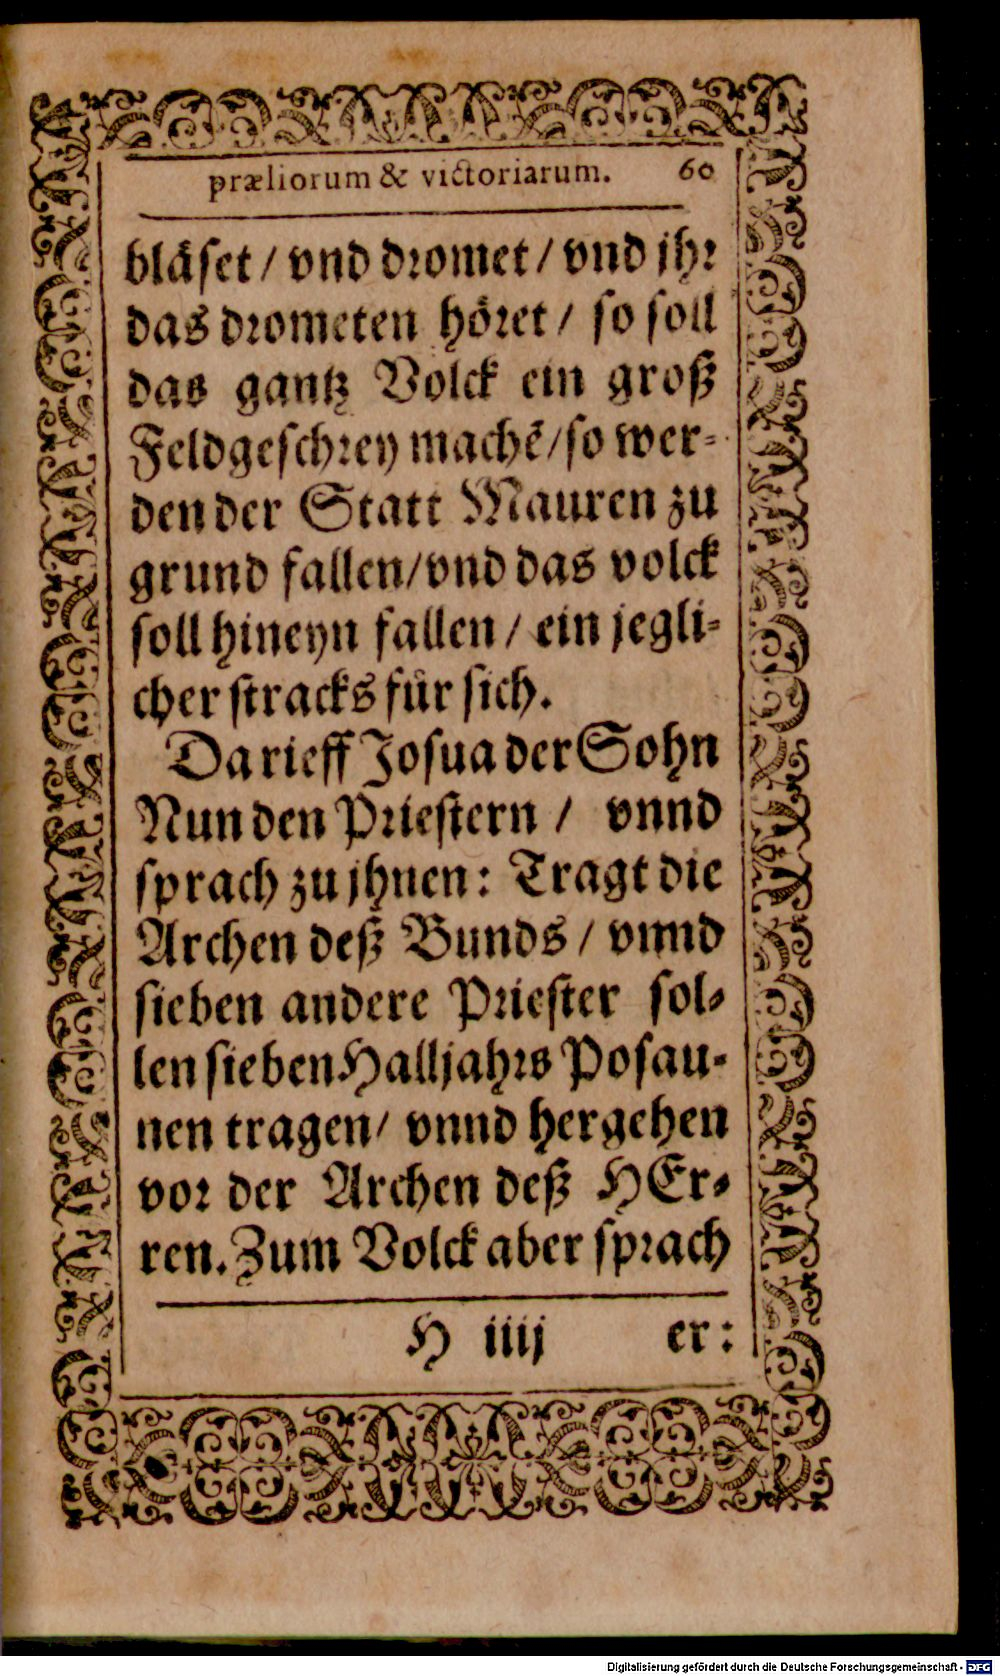 præliorum & victoriarum. 60
bläset / vnd dromet / vnd jhr
das drometen höret / so soll
das gantz Volck ein groß
Feldgeschrey machẽ/so wer-
den der Statt Mauren zu
grund fallen/vnd das volck
soll hineyn fallen / ein jegli-
cher stracks für sich.
Da rieff Josua der Sohn
Nun den Priestern / vnnd
sprach zu jhnen: Tragt die
Archen deß Bunds / vnnd
sieben andere Priester sol-
len sieben Halljahrs Posau-
nen tragen/ vnnd hergehen
vor der Archen deß HEr-
ren. Zum Volck aber sprach
H iiij er:
Digitalisierung gefördert durch die Deutsche Forschungsgemeinschaft - DFG